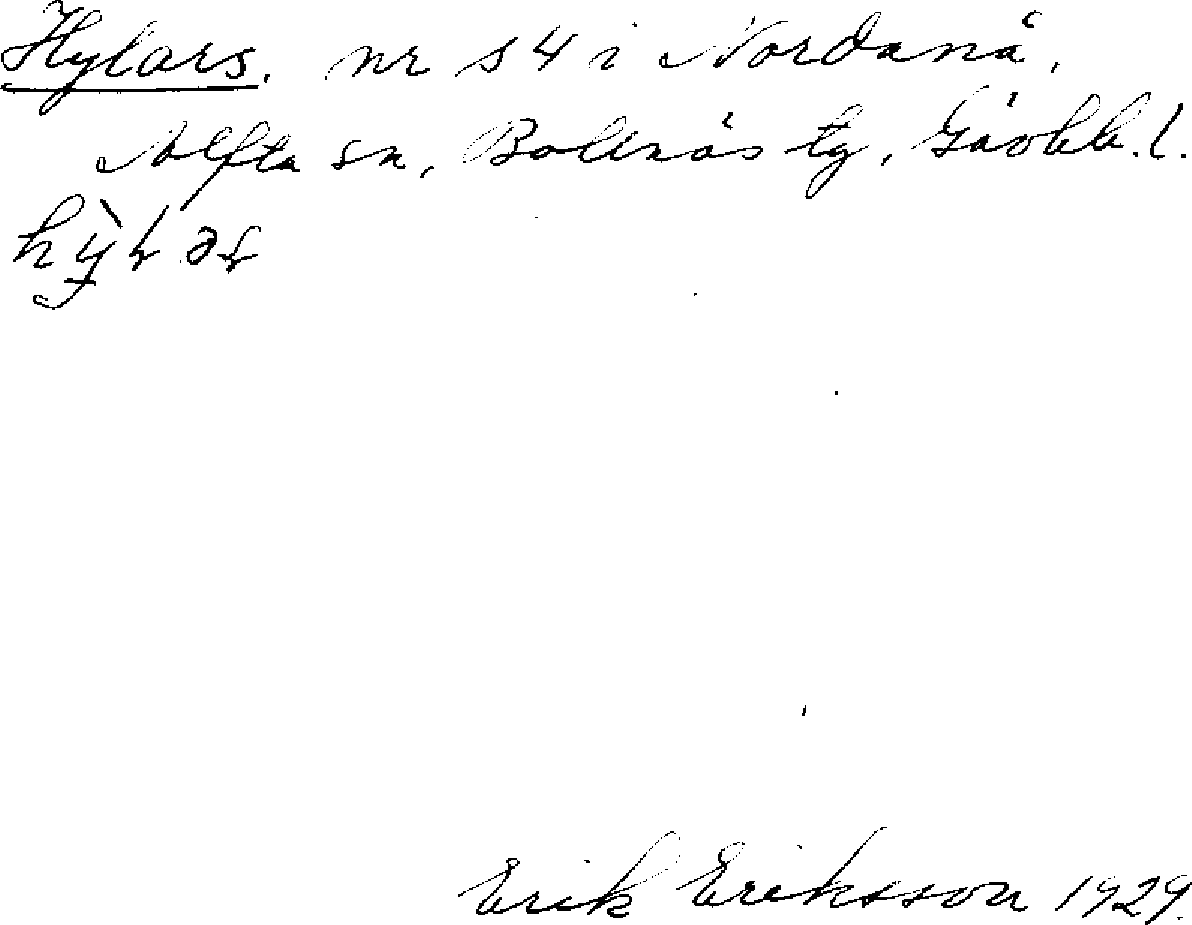 Hylars. nr 84 i Nordanå,
Alfta sn, Bollnäs tg, Gävlb. l.
Erik Eriksson 1929.